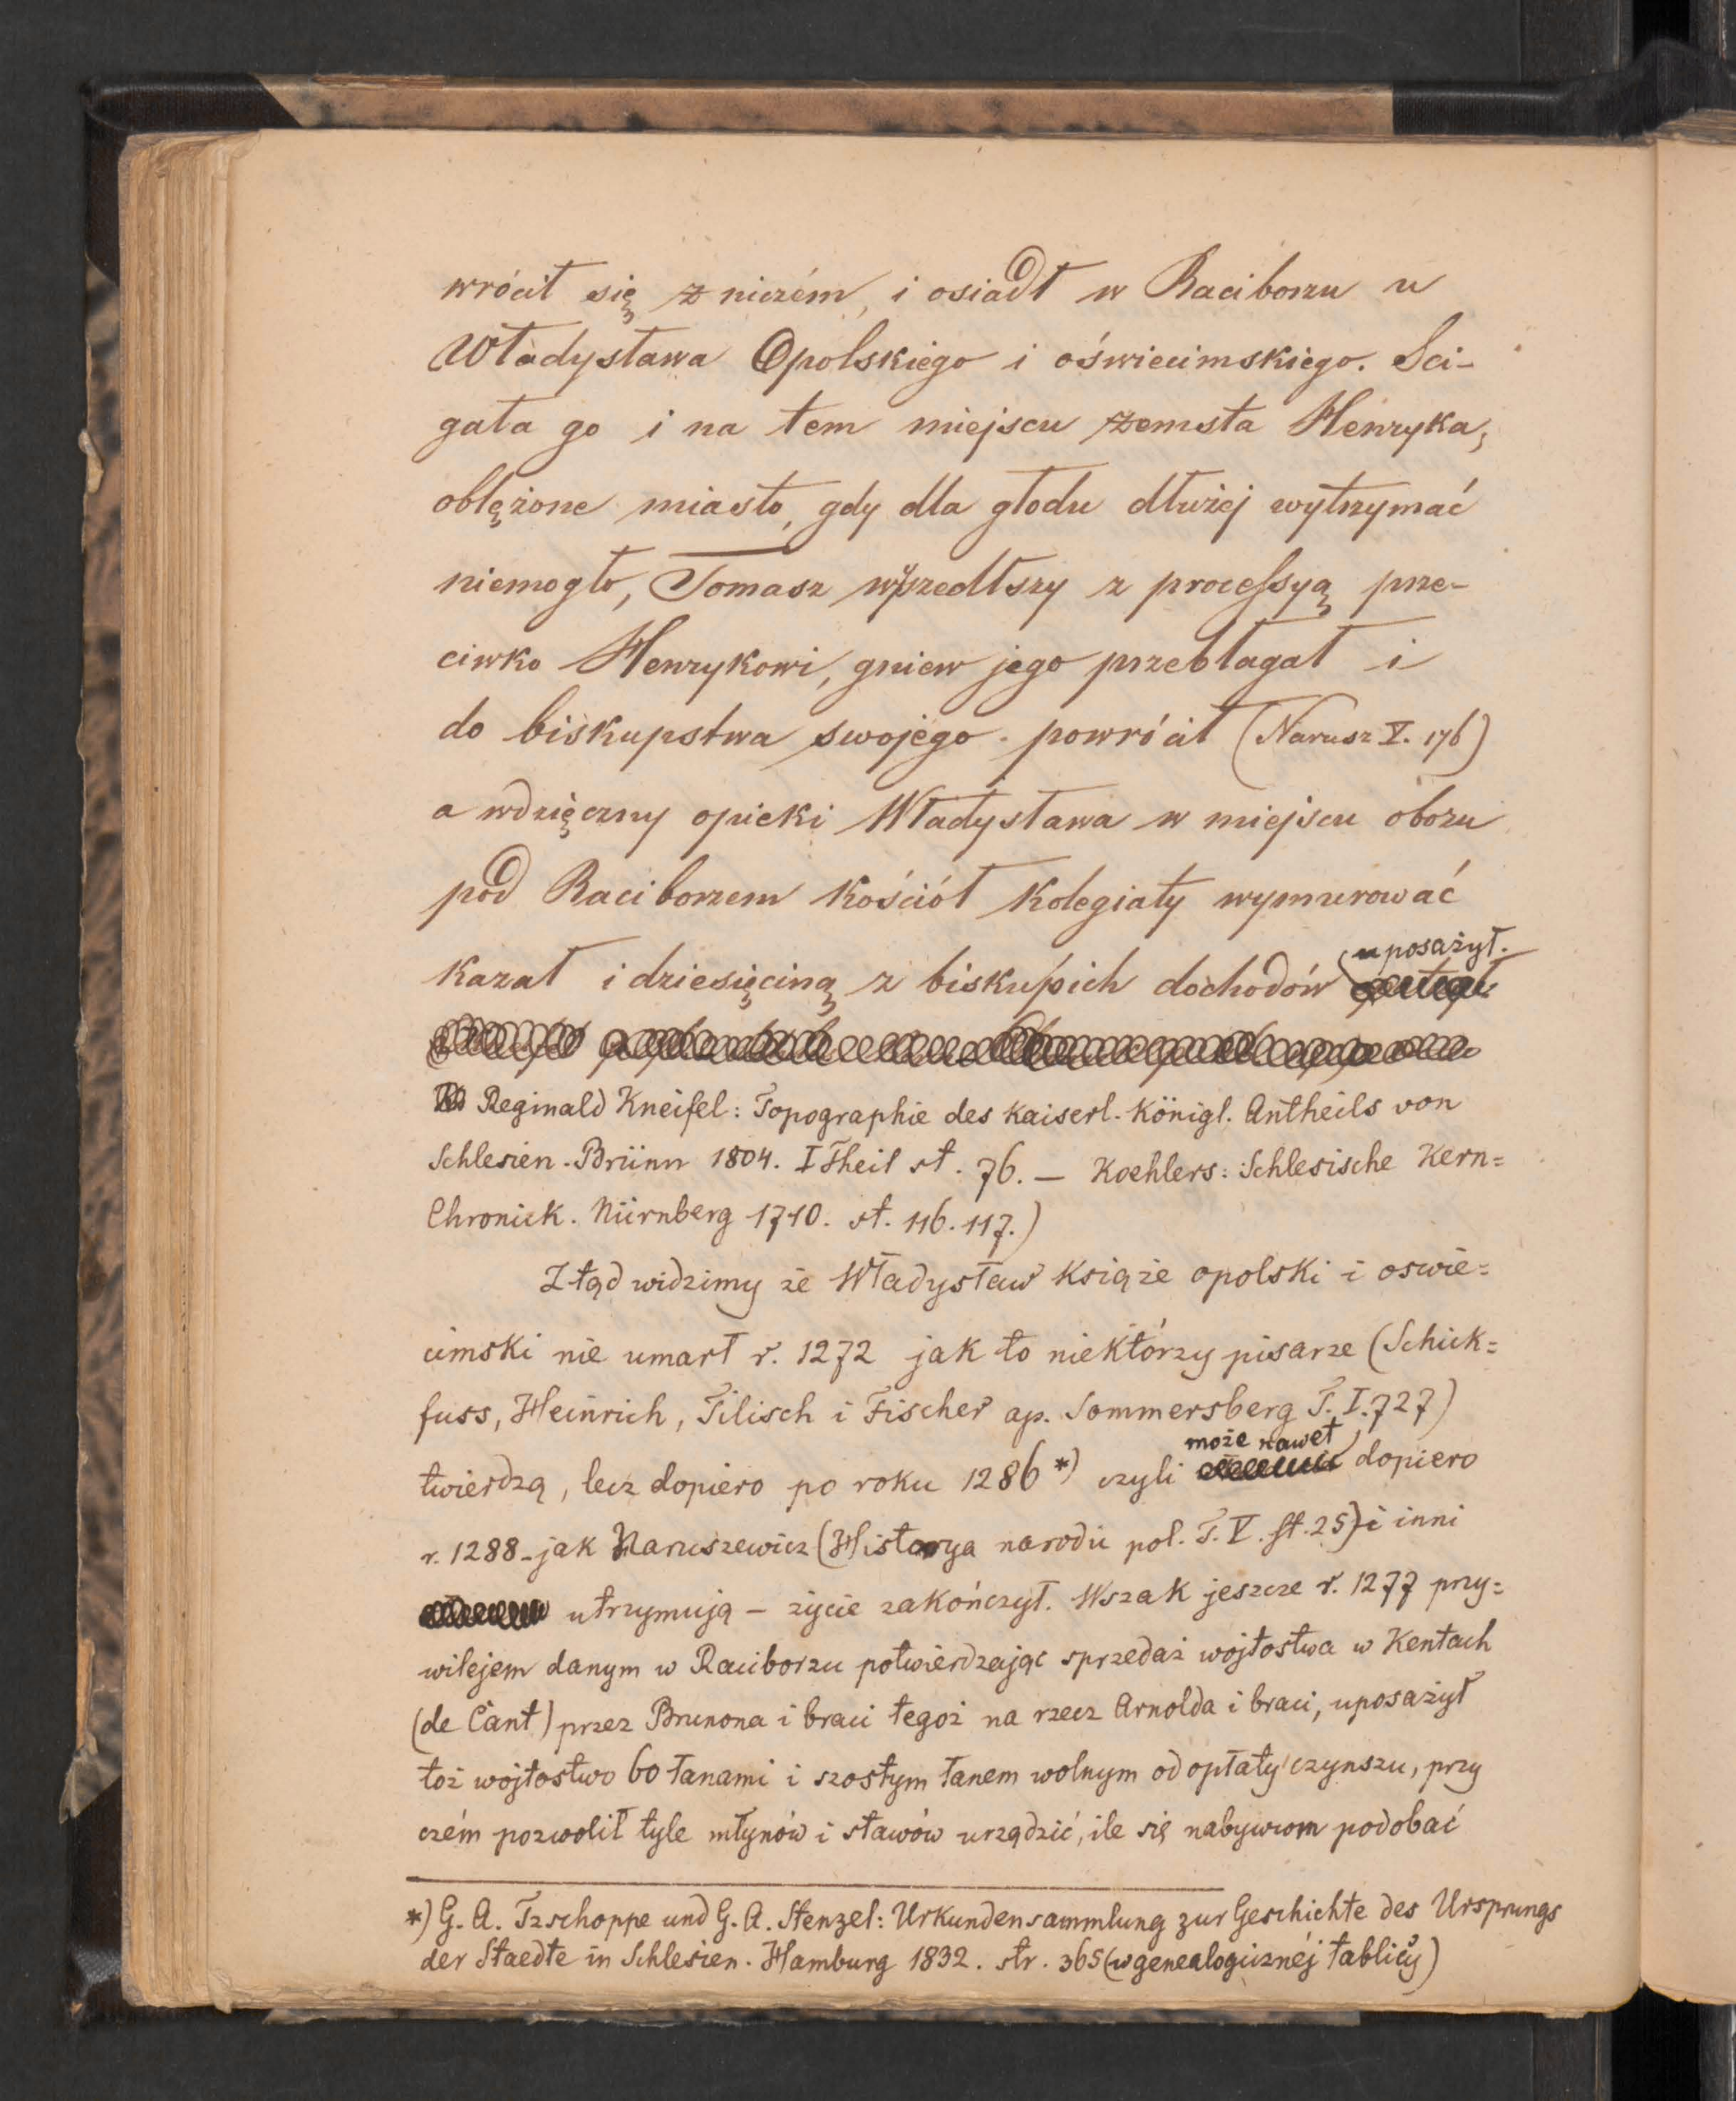 wrócił się z niczém, i osiadł w Raciborzu u
Władysława Opolskiego i oświecimskiego. Sci-
gała go i na tem miejscu zemsta Henryka,
oblężone miasto, gdy dla głodu dłużej wytrzymać
niemogło, Tomasz wyszedłszy z processyą prze-
ciwko Henrykowi, gniew jego przebłagał i
do biskupstwa swojego powrócił (Narusz V. 176)
a wdzięczny opieki Władysława w miejscu obozu
pod Raciborzem kościół kolegiaty wymurować
uposażył.
kazał i dziesięciną z biskupich dochodów
Reginald Kneifel: Topographie des kaiserl. Königl. Antheils von
Schlesien. Brünn 1804. I Theil st. 76. — Koehlers: Schlesische Kern=
Chronick. Nürnberg 1710. st. 116. 117.)
Ztąd widzimy że Władysław książe opolski i oswie=
cimski nie umarł r. 1272 jak to niektórzy pisarze (Schick=
fuss, Heinrich, Tilisch i Fischer ap. Sommersberg T. I. 727)
może nawet
twierdzą, lecz dopiero po roku 1286 *) czyli dopiero
r. 1288 - jak Naruszewicz (Historya narodu pol. T. V. st. 25) i inni
utrzymują – życie zakończył. Wszak jeszcze r. 1277 przy=
wilejem danym w Raciborzu potwierdzając sprzedaż wójtostwa w Kentach
(de Cant) przez Brunona i braci tegoż na rzecz Arnolda i braci, uposażył
toż wójtostwo 60 łanami i szostym łanem wolnym od opłaty czynszu, przy
czém pozwolił tyle młynów i stawów urządzić, ile się nabywcom podobać
*) G. A. Tzschoppe und G. A. Stenzel: Urkundensammlung zur Geschichte des Ursprungs
der Staedte in Schlesien. Hamburg 1832. str. 365 (w genealogicznéj tablicy)